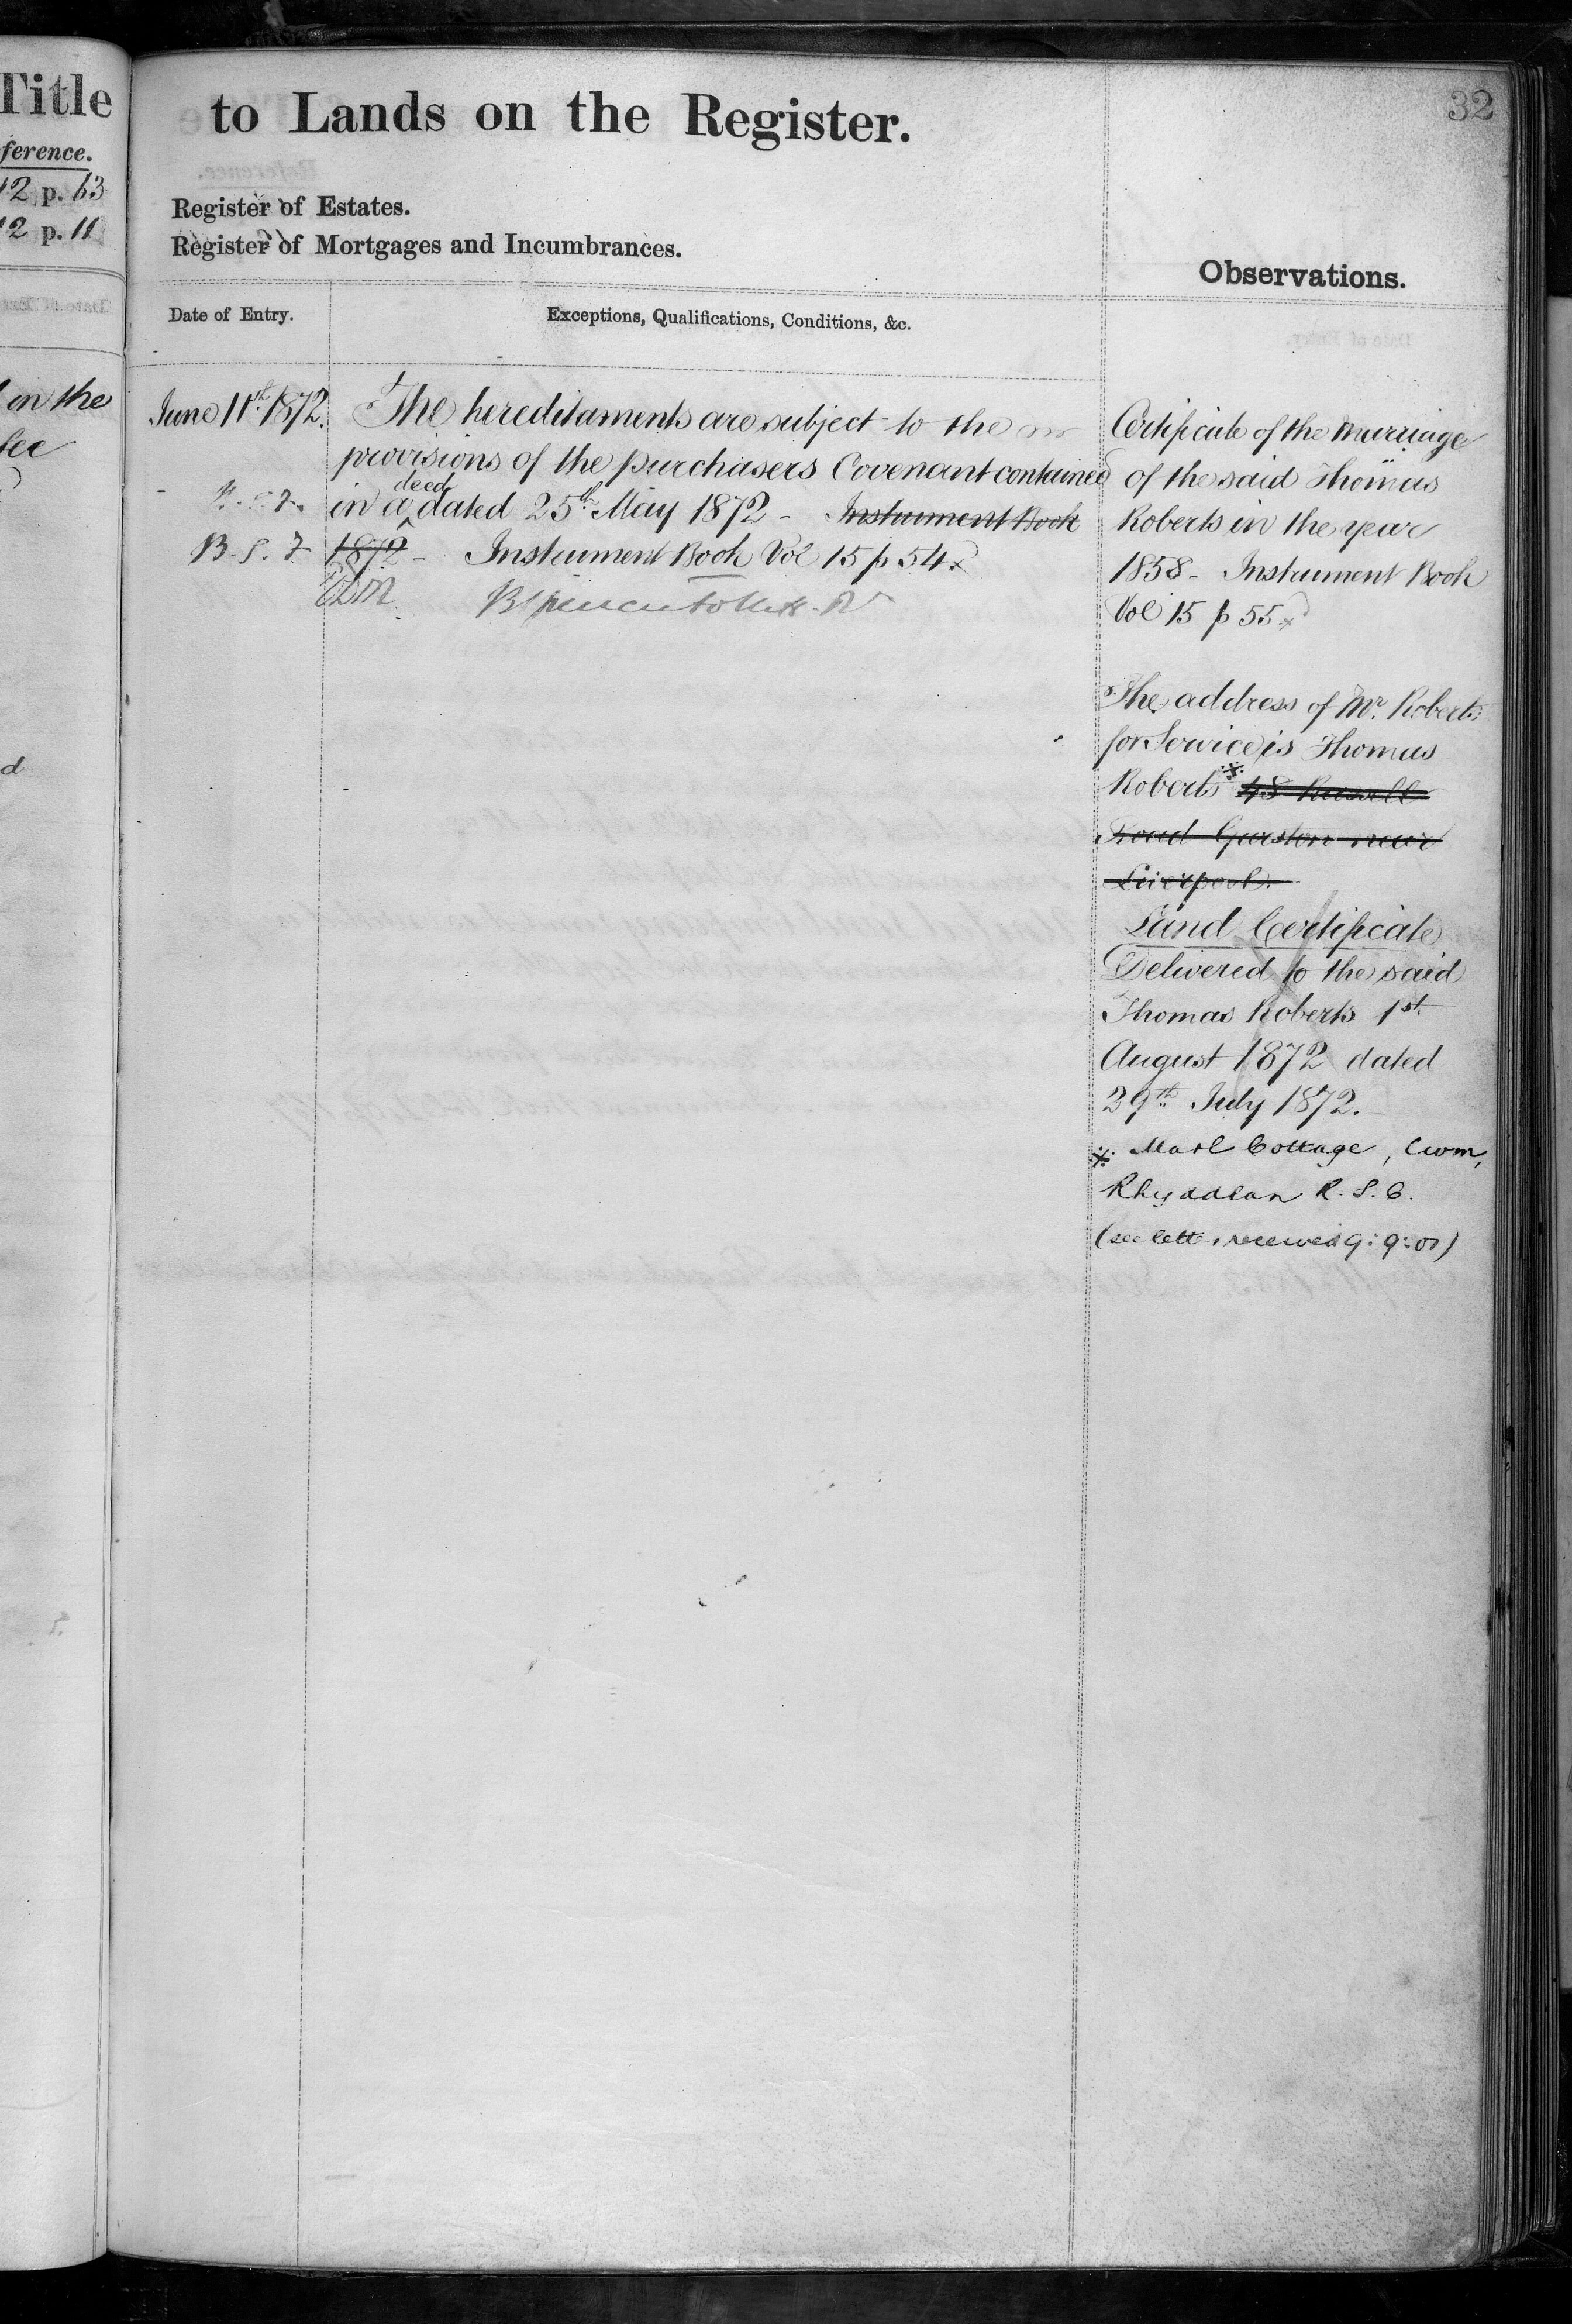 Title
ference.
12 p. 63
12 p. 11
in the
fee
d
32
to Lands on the Register.
Register of Estates.
Register of Mortgages and Incumbrances.
Date of Entry.
Exceptions, Qualifications, Conditions, &c.
June 11th 1872.
The hereditaments are subject to the
provisions of the purchasers Covenant contained
in a deed dated 25th May 1872 - Instrument Book
B. S. 7
1872 - Instrument Book Vol 15 p 54
Observations.
Certificate of the Marriage
of the said Thomas
Roberts in the year
1858 - Instrument Book
Vol 15 p 55
The address of Mr. Roberts
for Service is Thomas
Roberts 48 Russell
Road Garston near
Liverpool.
Land Certificate
Delivered to the said
Thomas Roberts 1st
August 1872 dated
29th July 1872.
Marl Cottage, Cwm,
Rhyddlan R. S. O.
(see letter received 9:9:07)